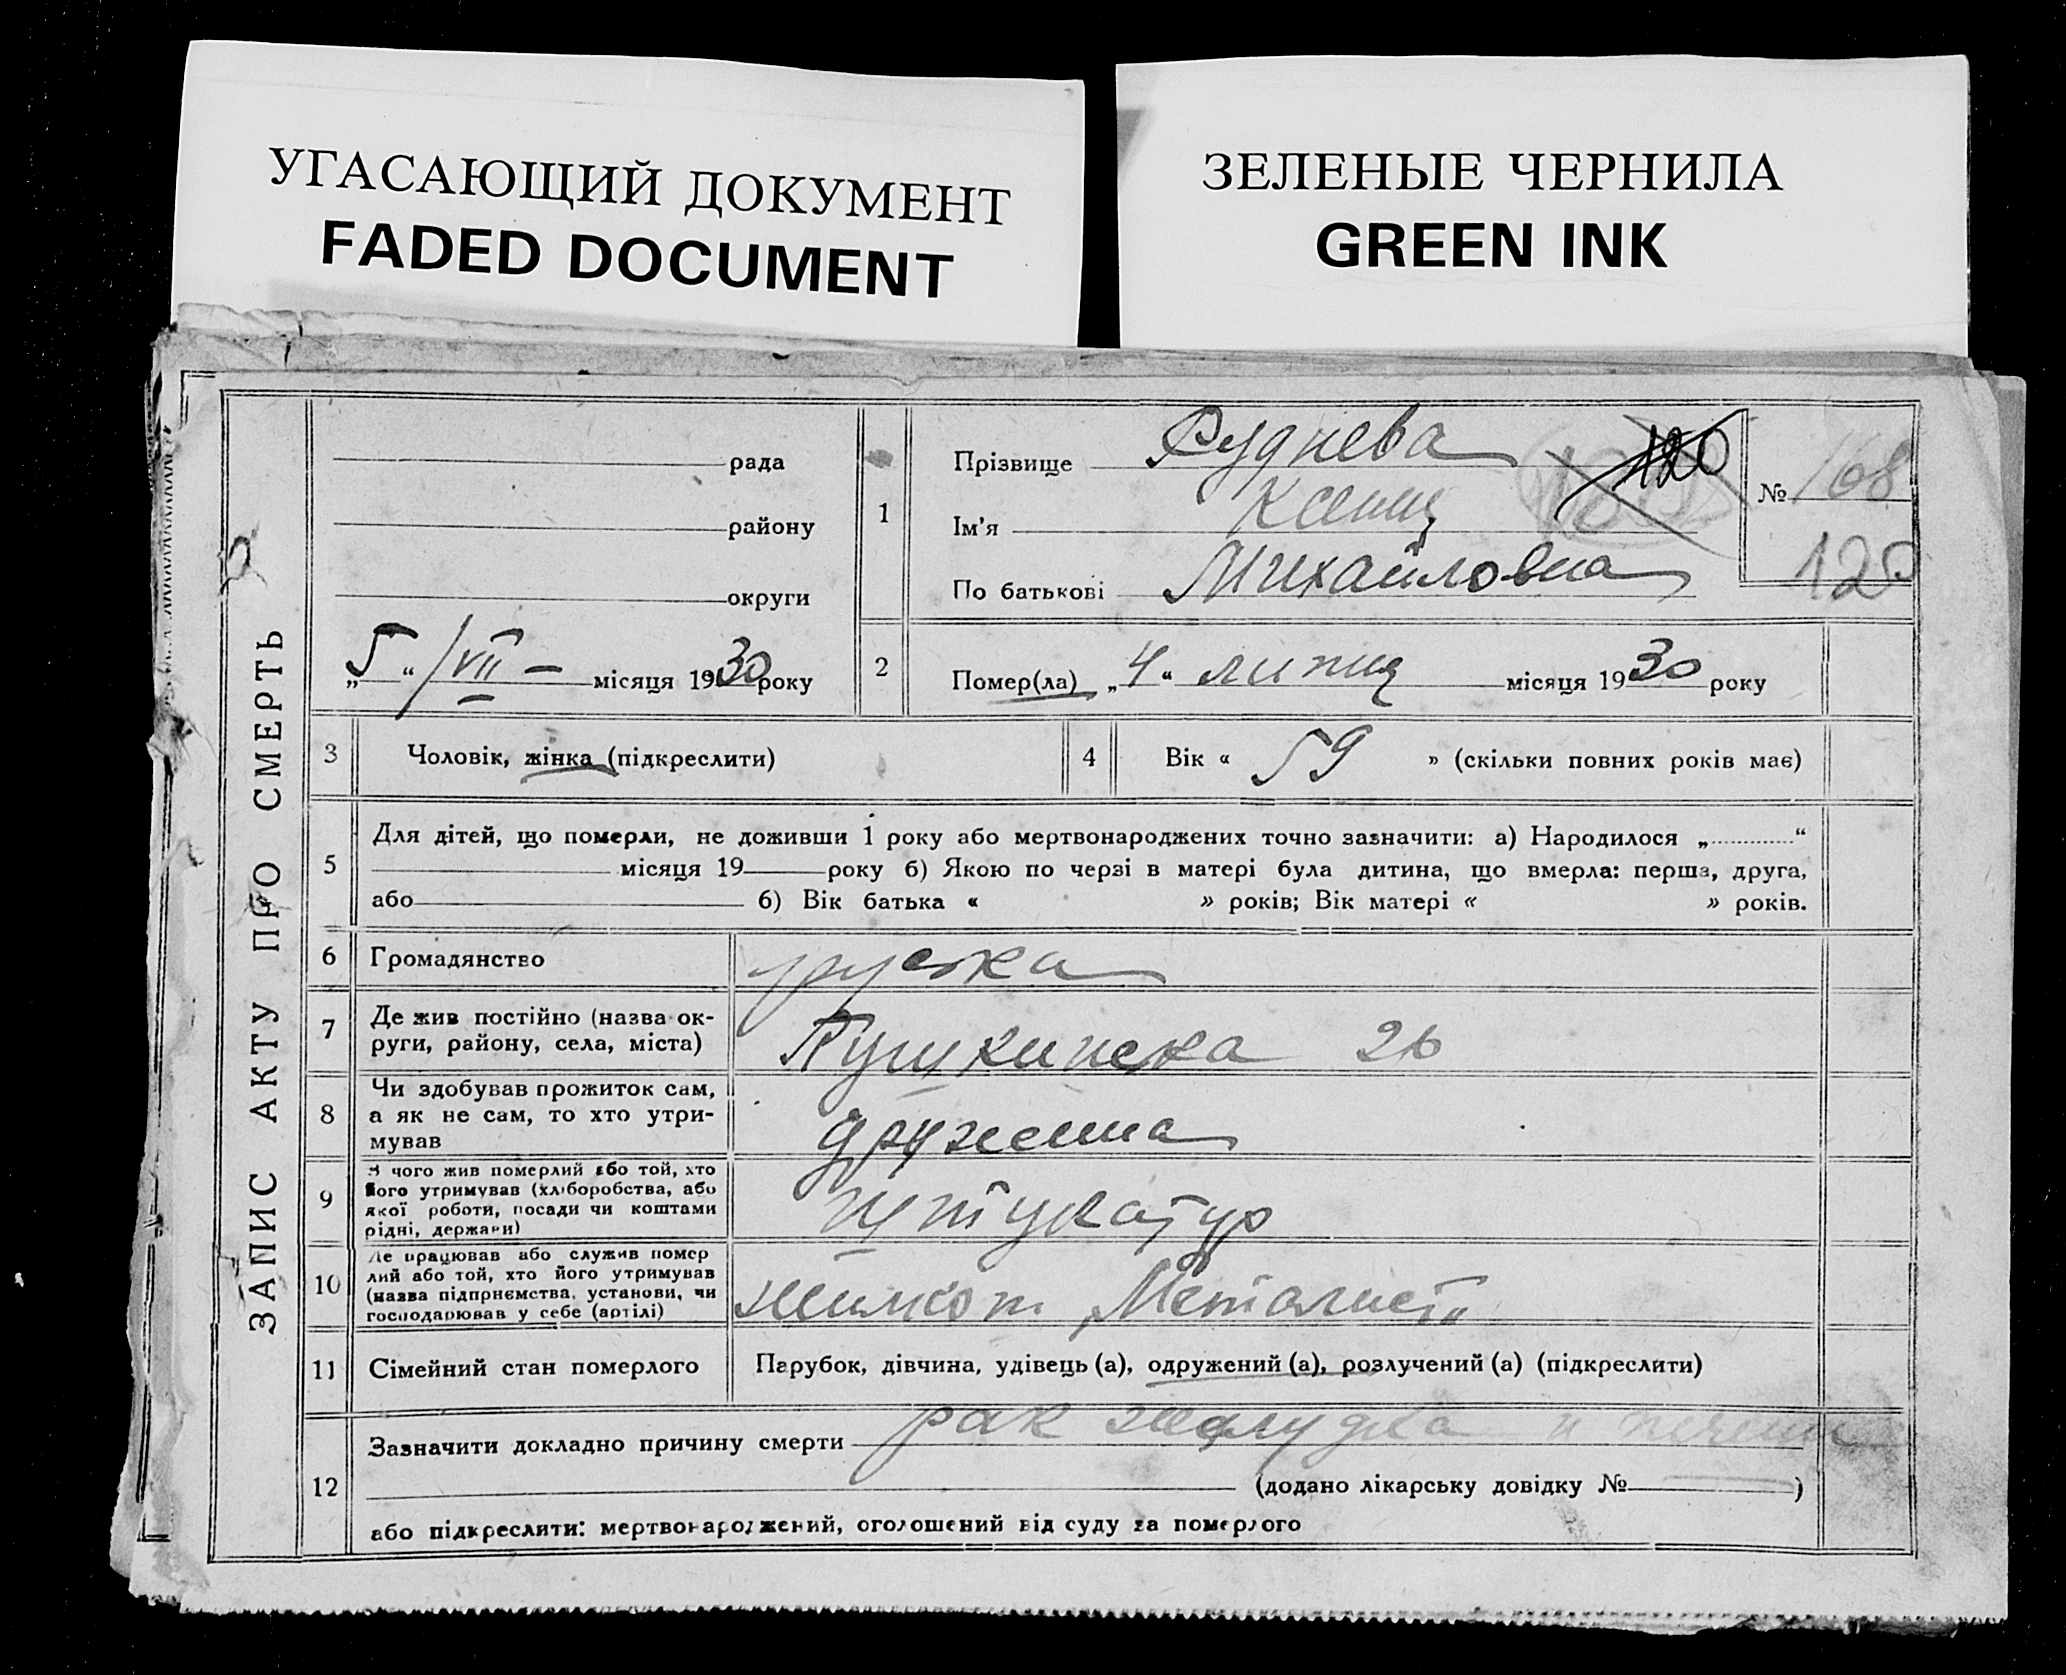 УГАСАЮЩИЙ ДОКУМЕНТ
FADED DOCUMENT
ЗЕЛЕНЫЕ ЧЕРНИЛА
GREEN INK
ЗАПИС АКТУ ПРО СМЕРТЬ
рада
району
округи
„5“ /VII – місяця 1930 року
1
Прізвище Руднева
Ім'я Ксения
По батькові Михайловна
120
№ 168
120
2
Помер(ла) „4“ липня місяця 1930 року
3
Чоловік, жінка (підкреслити)
4
Вік « 59 » (скільки повних років має)
5
Для дітей, що померли, не доживши 1 року або мертвонароджених точно зазначити: а) Народилося „ “
місяця 19 року б) Якою по черзі в матері була дитина, що вмерла: перша, друга,
або б) Вік батька « » років; Вік матері « » років.
6
Громадянство
руська
7
Де жив постійно (назва ок-
руги, району, села, міста)
Пушкинска 26
8
Чи здобував прожиток сам,
а як не сам, то хто утри-
мував
дружина
9
З чого жив померлий або той, хто
його утримував (хліборобства, або
якої роботи, посади чи коштами
рідні, держави)
штукатур
10
Де працював або служив помер
лий або той, хто його утримував
(назва підприємства, установи, чи
господарював у себе (артілі)
жилкоп „Металист“
11
Сімейний стан померлого
Парубок, дівчина, удівець (а), одружений (а), розлучений (а) (підкреслити)
12
Зазначити докладно причину смерти рак желудка и печени
(додано лікарську довідку № )
або підкреслити: мертвонароджений, оголошений від суду за померлого